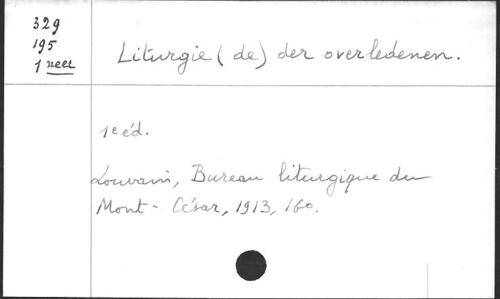 329
195
1 neer
Liturgie (de) der overledenen.
1e éd.
Louvain, Bureau liturgique du
Mont-César, 1913, 16o.